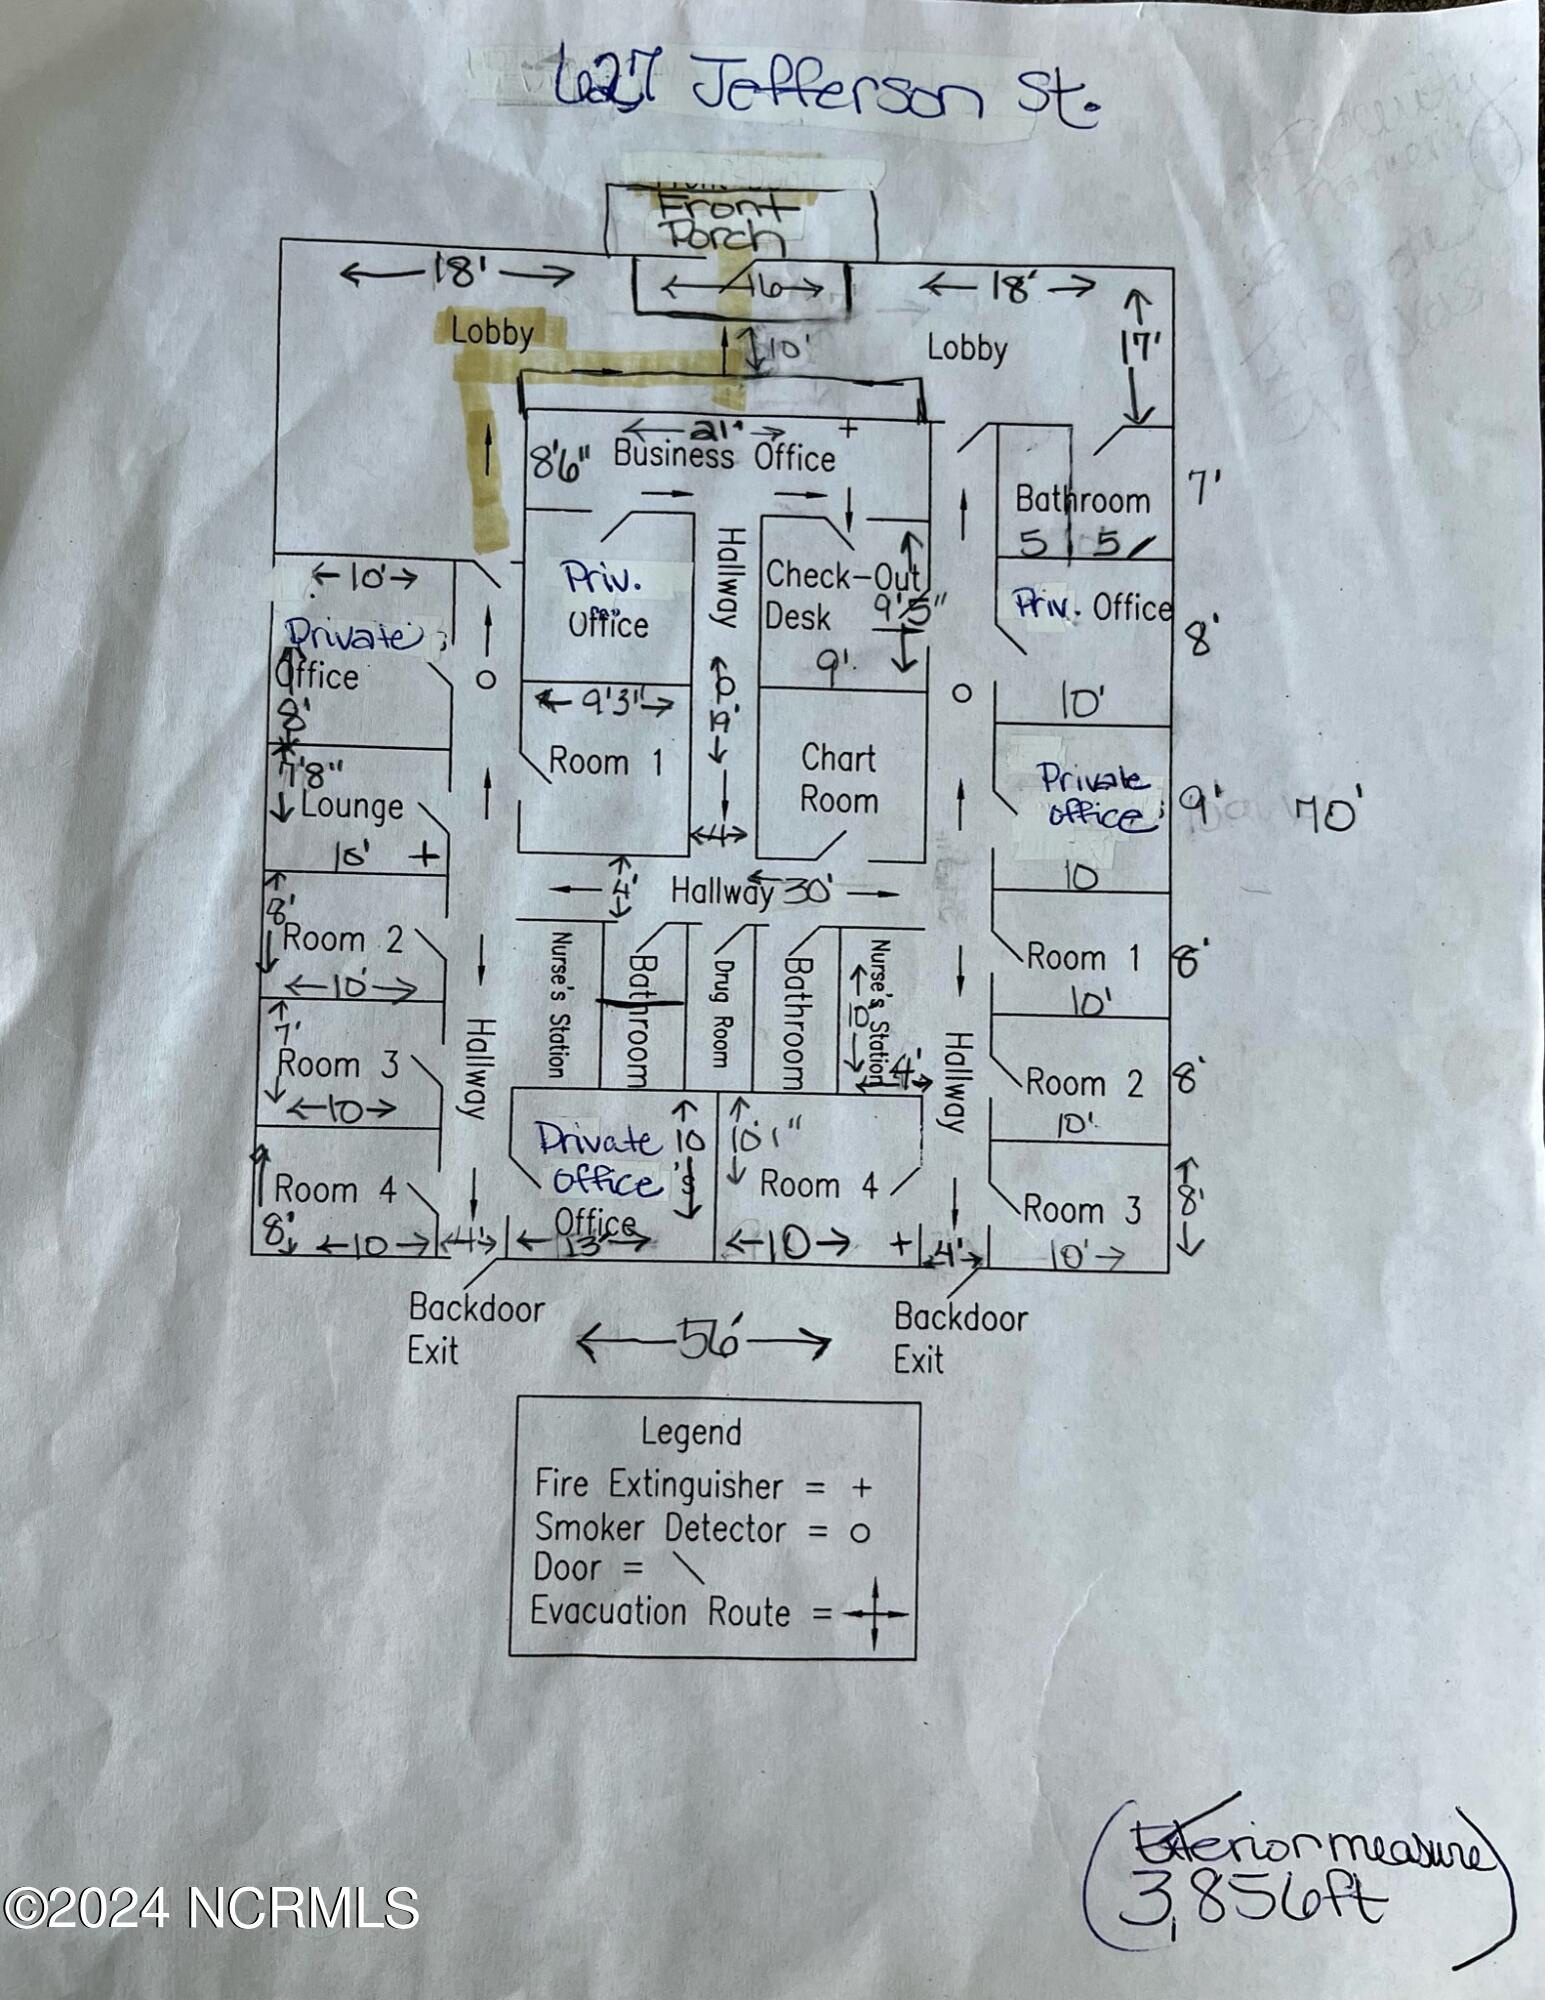 627 Jefferson St.
Front
Porch
←18'→
←16→
←18'→
17'
Lobby
10'
Lobby
←21'→
8'6" Business Office
Bathroom
7'
5 5
←10'→
Private
Office
8'
Priv.
Office
Hallway
Check-Out
Desk
9'5"
9'
Priv. Office
8'
10'
7'8"
Lounge
10' +
←9'3"→
Room 1
9'
←4→
Chart
Room
Private
office
9'
10
70'
4'
Hallway 30'
8'
Room 2
←10'→
Nurse's Station
Bathroom
Drug Room
Bathroom
Nurse's Station
10
4'
Room 1
8'
10'
7'
Room 3
←10→
Hallway
Hallway
Room 2
8'
10'
Room 4
8'
←10→
←4'→
Private
office
Office
10
←13'→
10'1"
Room 4
←10→ +
4'
Room 3
8'
10'→
Backdoor
Exit
Backdoor
Exit
←56'→
Legend
Fire Extinguisher = +
Smoker Detector = o
Door = \
Evacuation Route =
(Exterior measure
3,856ft)
©2024 NCRMLS